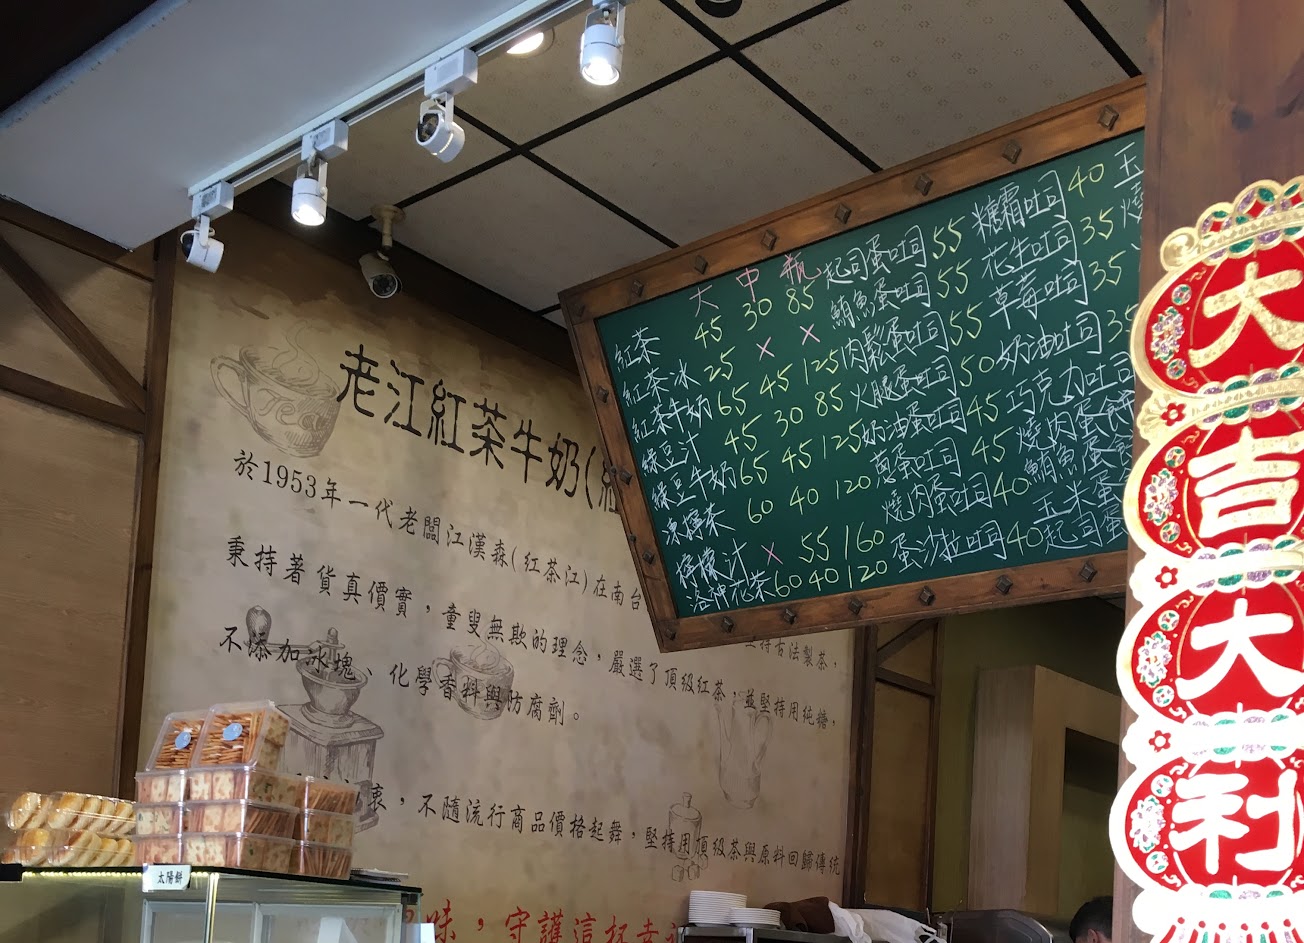 老江紅茶牛奶(紅
於1953年一代老闆江漢森(紅茶江)在南台
堅持古法製茶，
秉持著貨真價實，童叟無欺的理念，嚴選了頂級紅茶，並堅持用純糖，
不添加冰塊、化學香料與防腐劑。
衷，不隨流行商品價格起舞，堅持用頂級茶與原料回歸傳統
味，守護這杯幸
大 中 瓶
紅茶 45 30 85
紅茶冰 25 × ×
紅茶牛奶 65 45 125
綠豆汁 45 30 85
綠豆牛奶 65 45 125
凍檸茶 60 40 120
檸檬汁 × 55 160
洛神花茶 60 40 120
起司蛋吐司 55
鮪魚蛋吐司 55
肉鬆蛋吐司 55
火腿蛋吐司 50
奶油蛋吐司 45
蔥蛋吐司 45
燒肉蛋吐司 40
蛋沙拉吐司 40
糖霜吐司 40
花生吐司 35
草莓吐司 35
奶油吐司 35
巧克力吐司
燒肉蛋餅
鮪魚蛋
玉米蛋
起司蛋
玉
燒
大吉大利
太陽餅